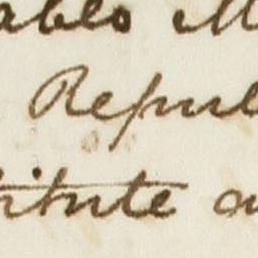 ables M
Repul
titute a